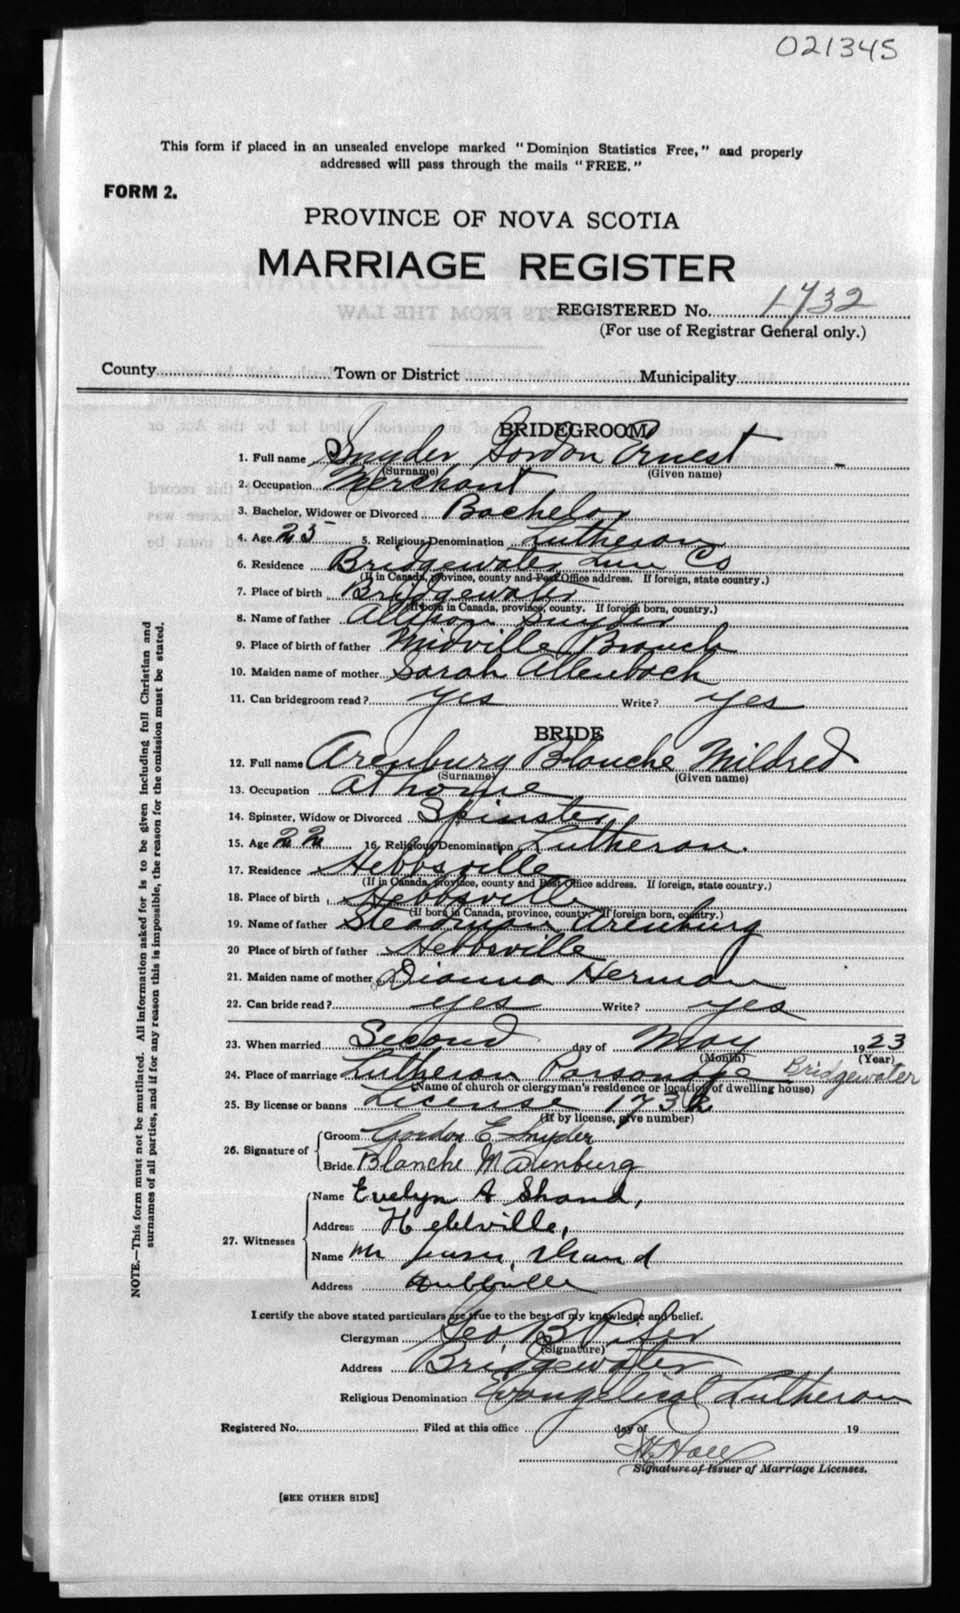 021345
This form if placed in an unsealed envelope marked "Dominion Statistics Free," and properly
addressed will pass through the mails "FREE."
FORM 2.
PROVINCE OF NOVA SCOTIA
MARRIAGE REGISTER
REGISTERED No. 1732
(For use of Registrar General only.)
County Town or District Municipality
BRIDEGROOM
1. Full name Snyder Gordon Ernest
(Surname) (Given name)
2. Occupation Merchant
3. Bachelor, Widower or Divorced Bachelor
4. Age 25 5. Religious Denomination Lutheran
6. Residence Bridgewater Lun Co
(If in Canada, province, county and Post Office address. If foreign, state country.)
7. Place of birth Bridgewater
(If born in Canada, province, county. If foreign born, country.)
8. Name of father Allison Snyder
9. Place of birth of father Midville Branch
10. Maiden name of mother Sarah Allenbach
11. Can bridegroom read? yes Write? yes
BRIDE
12. Full name Arenburg Blanche Mildred
(Surname) (Given name)
13. Occupation At home
14. Spinster, Widow or Divorced Spinster
15. Age 22 16. Religious Denomination Lutheran.
17. Residence Hebbsville
(If in Canada, province, county and Post Office address. If foreign, state country.)
18. Place of birth Hebbsville
(If born in Canada, province, county. If foreign born, country.)
19. Name of father Steadman Arenburg
20 Place of birth of father Hebbsville
21. Maiden name of mother Dianna Herman
22. Can bride read? yes Write? yes
23. When married Second day of May 1923
(Month) (Year)
24. Place of marriage Lutheran Parsonage Bridgewater
(Name of church or clergyman's residence or location of dwelling house)
25. By license or banns License 1732
(If by license, give number)
26. Signature of Groom Gordon E. Snyder
Bride Blanche M Arenburg
27. Witnesses
Name Evelyn A Shand,
Address Hebbville,
Name Mr Shand
Address Hebbville
I certify the above stated particulars are true to the best of my knowledge and belief.
Clergyman Geo. B Pifer
(Signature)
Address Bridgewater
Religious Denomination Evangelical Lutheran
Registered No. Filed at this office day of 19
Signature of Issuer of Marriage Licenses.
[SEE OTHER SIDE]
NOTE.—This form must not be mutilated. All information asked for is to be given including full Christian and
surnames of all parties, and if for any reason this is impossible, the reason for the omission must be stated.